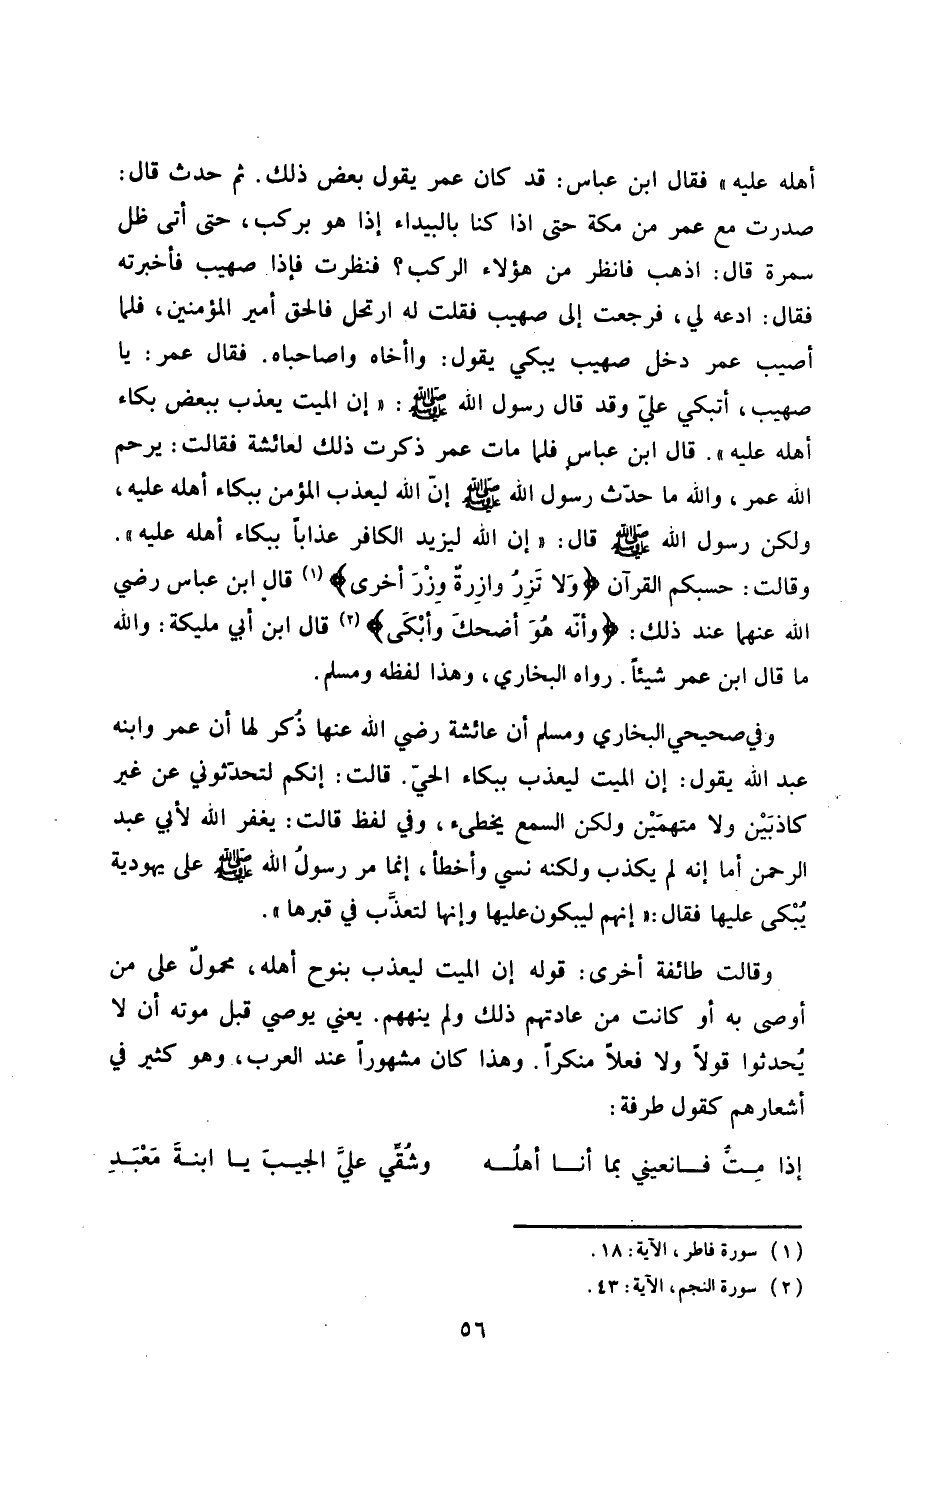 أهله عليه » فقال ابن عباس: قد كان عمر يقول بعض ذلك. ثم حدث قال:
صدرت مع عمر من مكة حتى اذا كنا بالبيداء إذا هو بركب، حتى أتى ظل
سمرة قال: اذهب فانظر من هؤلاء الركب؟ فنظرت فإذا صهيب فأخبرته
فقال: ادعه لي، فرجعت إلى صهيب فقلت له ارتحل فالحق أمير المؤمنين، فلما
أصيب عمر دخل صهيب يبكي يقول: واأخاه واصاحباه. فقال عمر: يا
صهيب، أتبكي عليّ وقد قال رسول الله ﷺ: « إن الميت يعذب ببعض بكاء
أهله عليه ». قال ابن عباس فلما مات عمر ذكرت ذلك لعائشة فقالت: يرحم
الله عمر، والله ما حدّث رسول الله ﷺ إنّ الله ليعذب المؤمن ببكاء أهله عليه،
ولكن رسول الله ﷺ قال: « إن الله ليزيد الكافر عذاباً ببكاء أهله عليه ».
وقالت: حسبكم القرآن ﴿وَلا تَزِرُ وازِرةٌ وِزْرَ أخرى﴾ (١) قال ابن عباس رضي
الله عنهما عند ذلك: ﴿وأنّه هُوَ أضحكَ وأبْكَى﴾ (٢) قال ابن أبي مليكة: والله
ما قال ابن عمر شيئاً. رواه البخاري، وهذا لفظه ومسلم.
وفي صحيحي البخاري ومسلم أن عائشة رضي الله عنها ذُكر لها أن عمر وابنه
عبد الله يقول: إن الميت ليعذب ببكاء الحيّ. قالت: إنكم لتحدّثوني عن غير
كاذبَيْن ولا متهمَيْن ولكن السمع يخطىء، وفي لفظ قالت: يغفر الله لأبي عبد
الرحمن أما إنه لم يكذب ولكنه نسي وأخطأ، إنما مر رسولُ الله ﷺ على يهودية
يُبْكى عليها فقال: « إنهم ليبكون عليها وإنها لتعذَّب في قبرها ».
وقالت طائفة أخرى: قوله إن الميت ليعذب بنوح أهله، محمولٌ على من
أوصى به أو كانت من عادتهم ذلك ولم ينههم. يعني يوصي قبل موته أن لا
يُحدثوا قولاً ولا فعلاً منكراً. وهذا كان مشهوراً عند العرب، وهو كثير في
أشعارهم كقول طرفة:
إذا مِتُّ فانعيني بما أنا أهلُه وشُقِّي عليَّ الجيبَ يا ابنةَ مَعْبَدِ
(١) سورة فاطر، الآية: ١٨.
(٢) سورة النجم، الآية: ٤٣.
٥٦